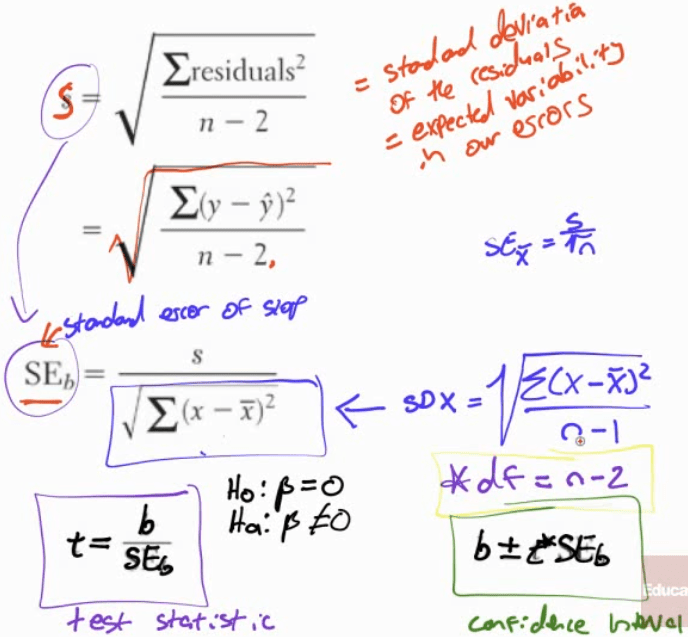 s = √(∑residuals² / (n − 2))
= standard deviatia
of the residuals
= expected variability
in our errors
= √(∑(y − ŷ)² / (n − 2))
SE_x̄ = s/√n
standard error of slop
SE_b = s / √(∑(x − x̄)²)
← SDX = √(∑(x − x̄)² / (n − 1))
* df = n − 2
Ho: β = 0
Ha: β ≠ 0
t = b / SE_b
b ± t* SE_b
test statistic
confidence interval
Educa